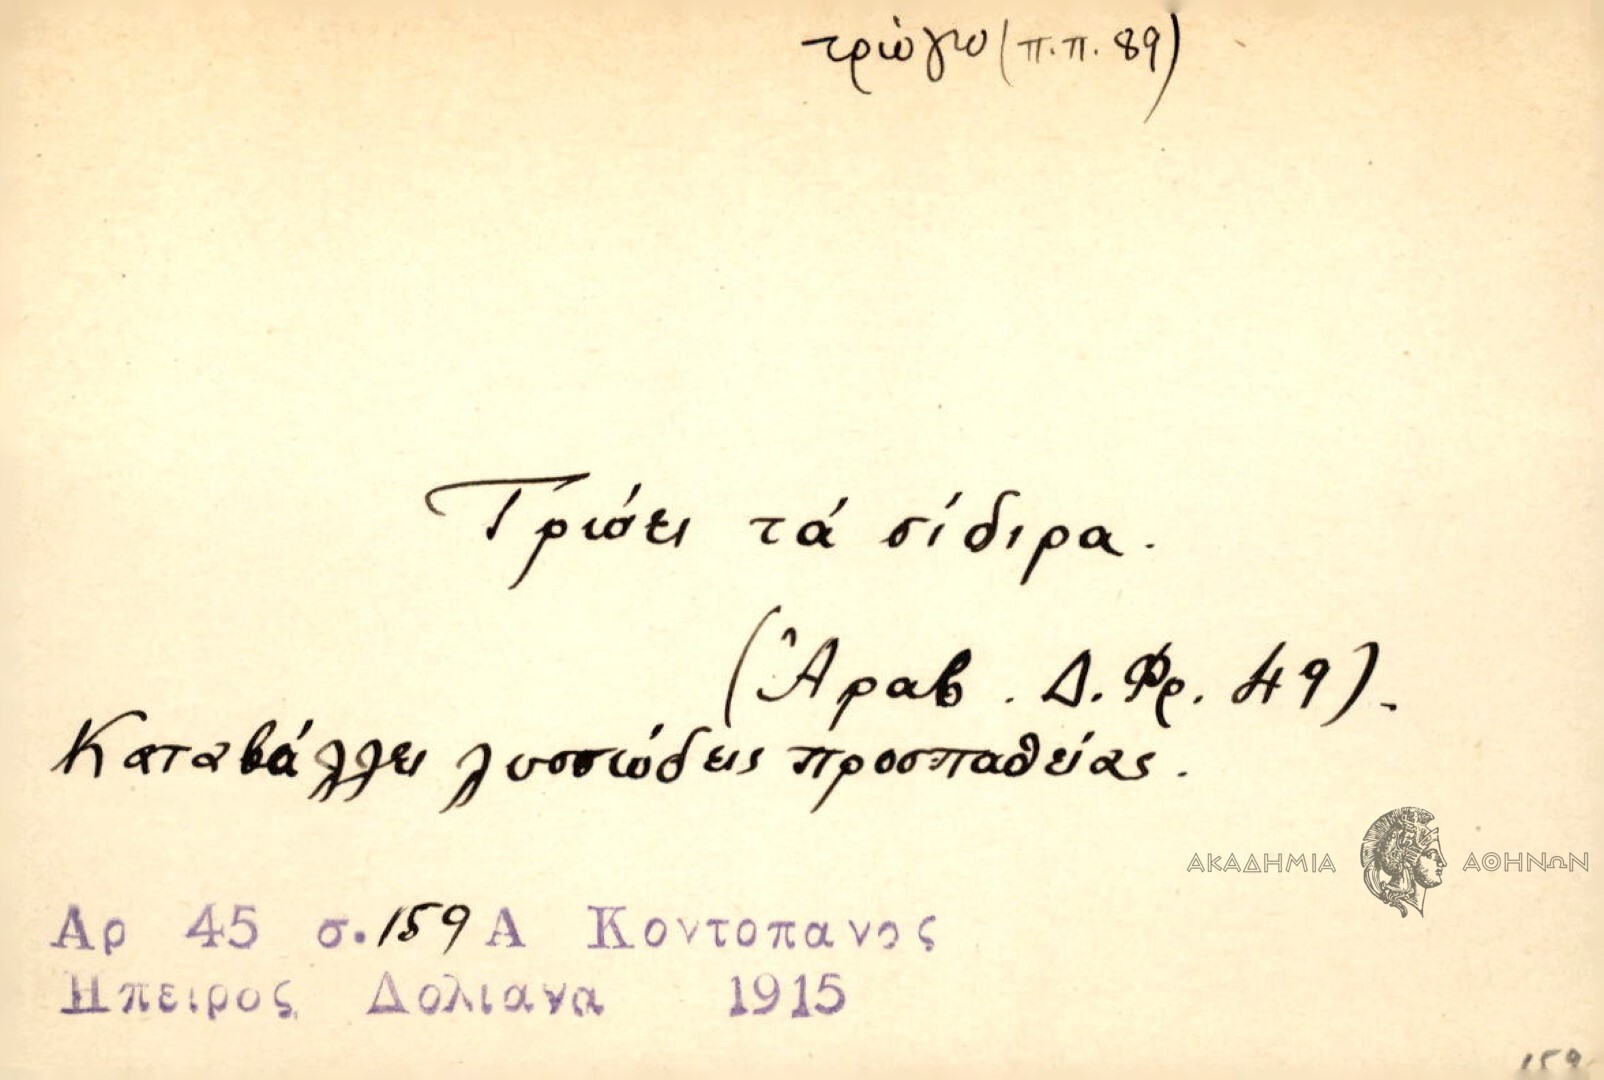 τρώγω (π.π. 89)
Τρώει τά σίδιρα.
(Ἀραβ. Δ. Φρ. 49).
Καταβάλλει λυσσώδεις προσπαθείας.
ΑΚΑΔΗΜΙΑ ΑΘΗΝΩΝ
Αρ 45 σ. 159 Α Κοντοπανος
Ηπειρος Δολιανα 1915
159